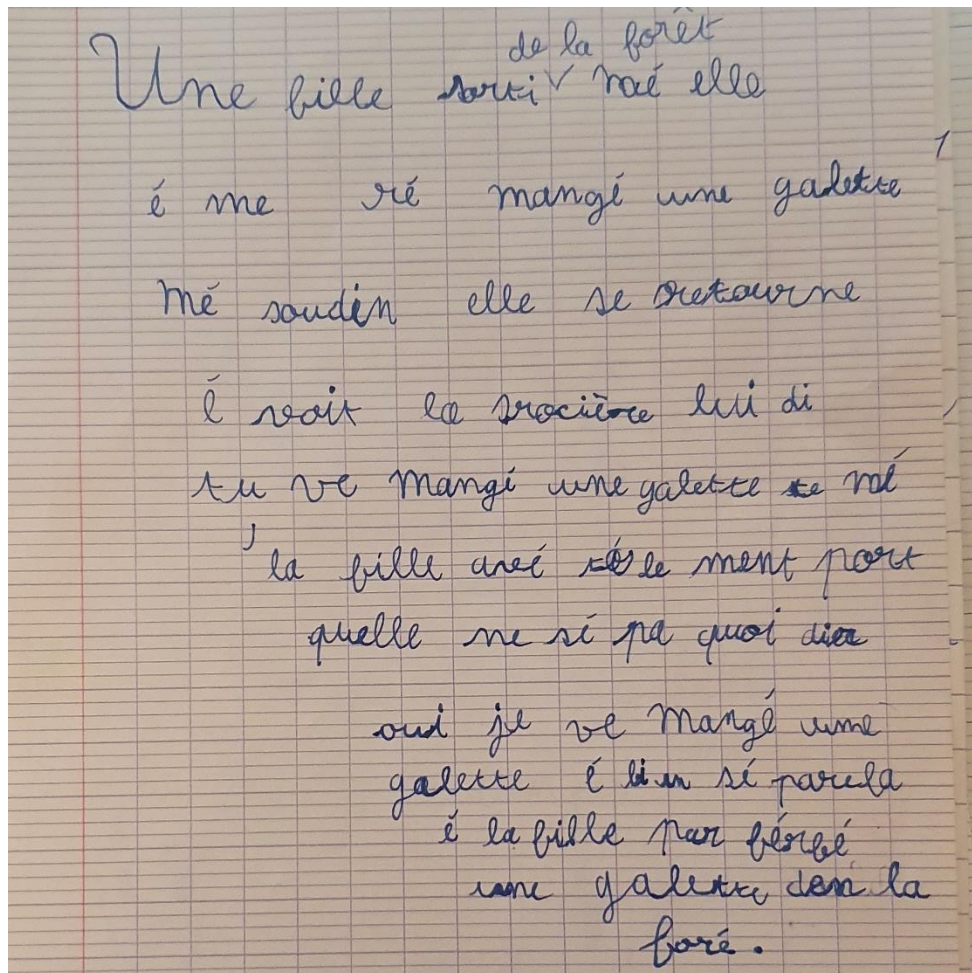 de la forêt
Une fille sorti √ mé elle
1
é me ré mangé une galette
mé soudin elle se retourne
é voit la srocière lui di
tu ve mangé une galette mé
la fille avé le ment port
quelle ne sé pa quoi dier
oui je ve mangé une
galette é bi in sé parela
é la fille par
une galette den la
foré.